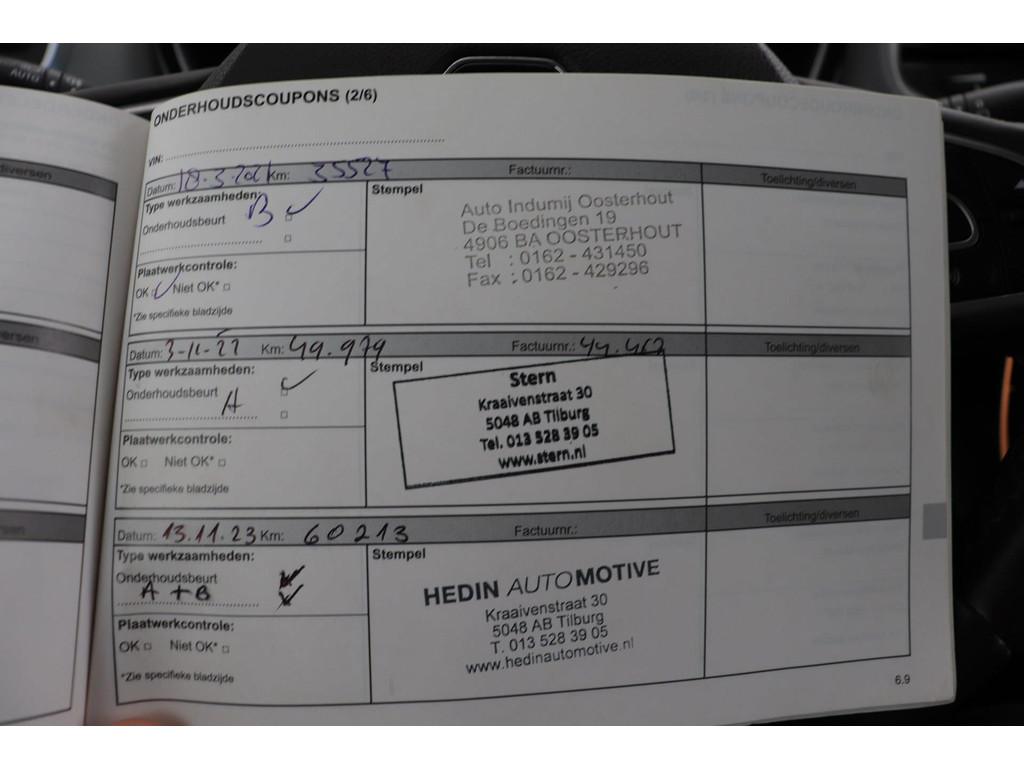 AUTO
ONDERHOUDSCOUPONS (2/6)
VIN:
Datum: Km: 35527 Factuurnr.: Toelichting/diversen
Type werkzaamheden: B
Onderhoudsbeurt
Plaatwerkcontrole:
OK Niet OK*
*Zie specifieke bladzijde
Stempel
Auto Indumij Oosterhout
De Boedingen 19
4906 BA OOSTERHOUT
Tel : 0162 - 431450
Fax : 0162 - 429296
Datum: Km: 49.979 Factuurnr.: Toelichting/diversen
Type werkzaamheden:
Onderhoudsbeurt
A
Plaatwerkcontrole:
OK Niet OK*
*Zie specifieke bladzijde
Stempel
Stern
Kraaivenstraat 30
5048 AB Tilburg
Tel. 013 528 39 05
www.stern.nl
Datum: 13.11.23 Km: 60213 Factuurnr.: Toelichting/diversen
Type werkzaamheden:
Onderhoudsbeurt
A + B
Plaatwerkcontrole:
OK Niet OK*
*Zie specifieke bladzijde
Stempel
HEDIN AUTOMOTIVE
Kraaivenstraat 30
5048 AB Tilburg
T. 013 528 39 05
www.hedinautomotive.nl
6.9